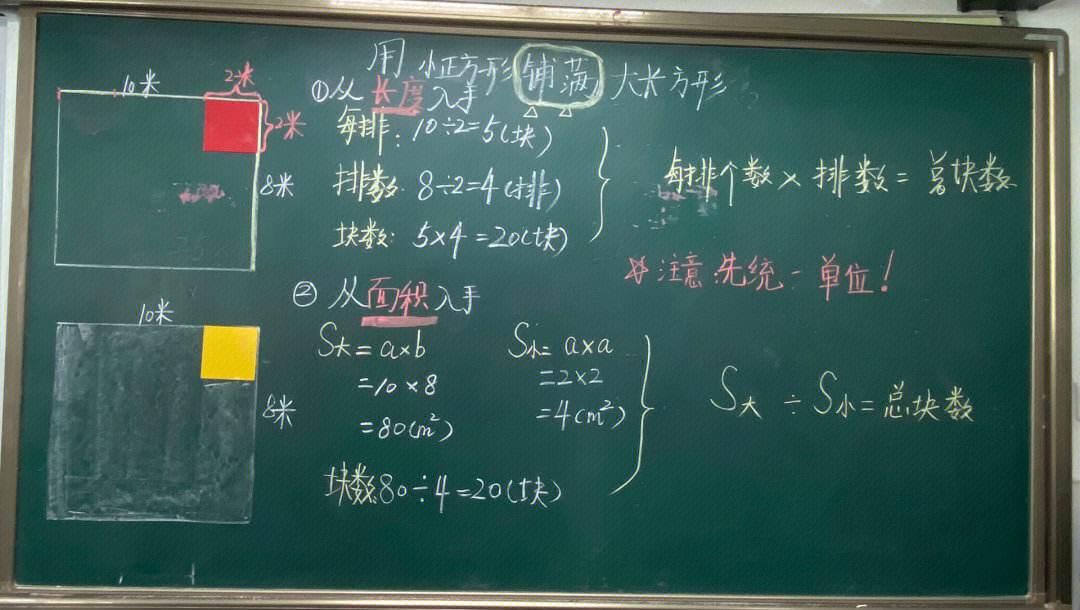 用小正方形铺满大长方形
10米
2米
2米
8米
①从长度入手
每排：10÷2=5(块)
排数：8÷2=4(排)
块数：5×4=20(块)
每排个数×排数=总块数
注意：先统一单位！
②从面积入手
10米
8米
S大=a×b
=10×8
=80(m²)
S小=a×a
=2×2
=4(m²)
块数80÷4=20(块)
S大÷S小=总块数